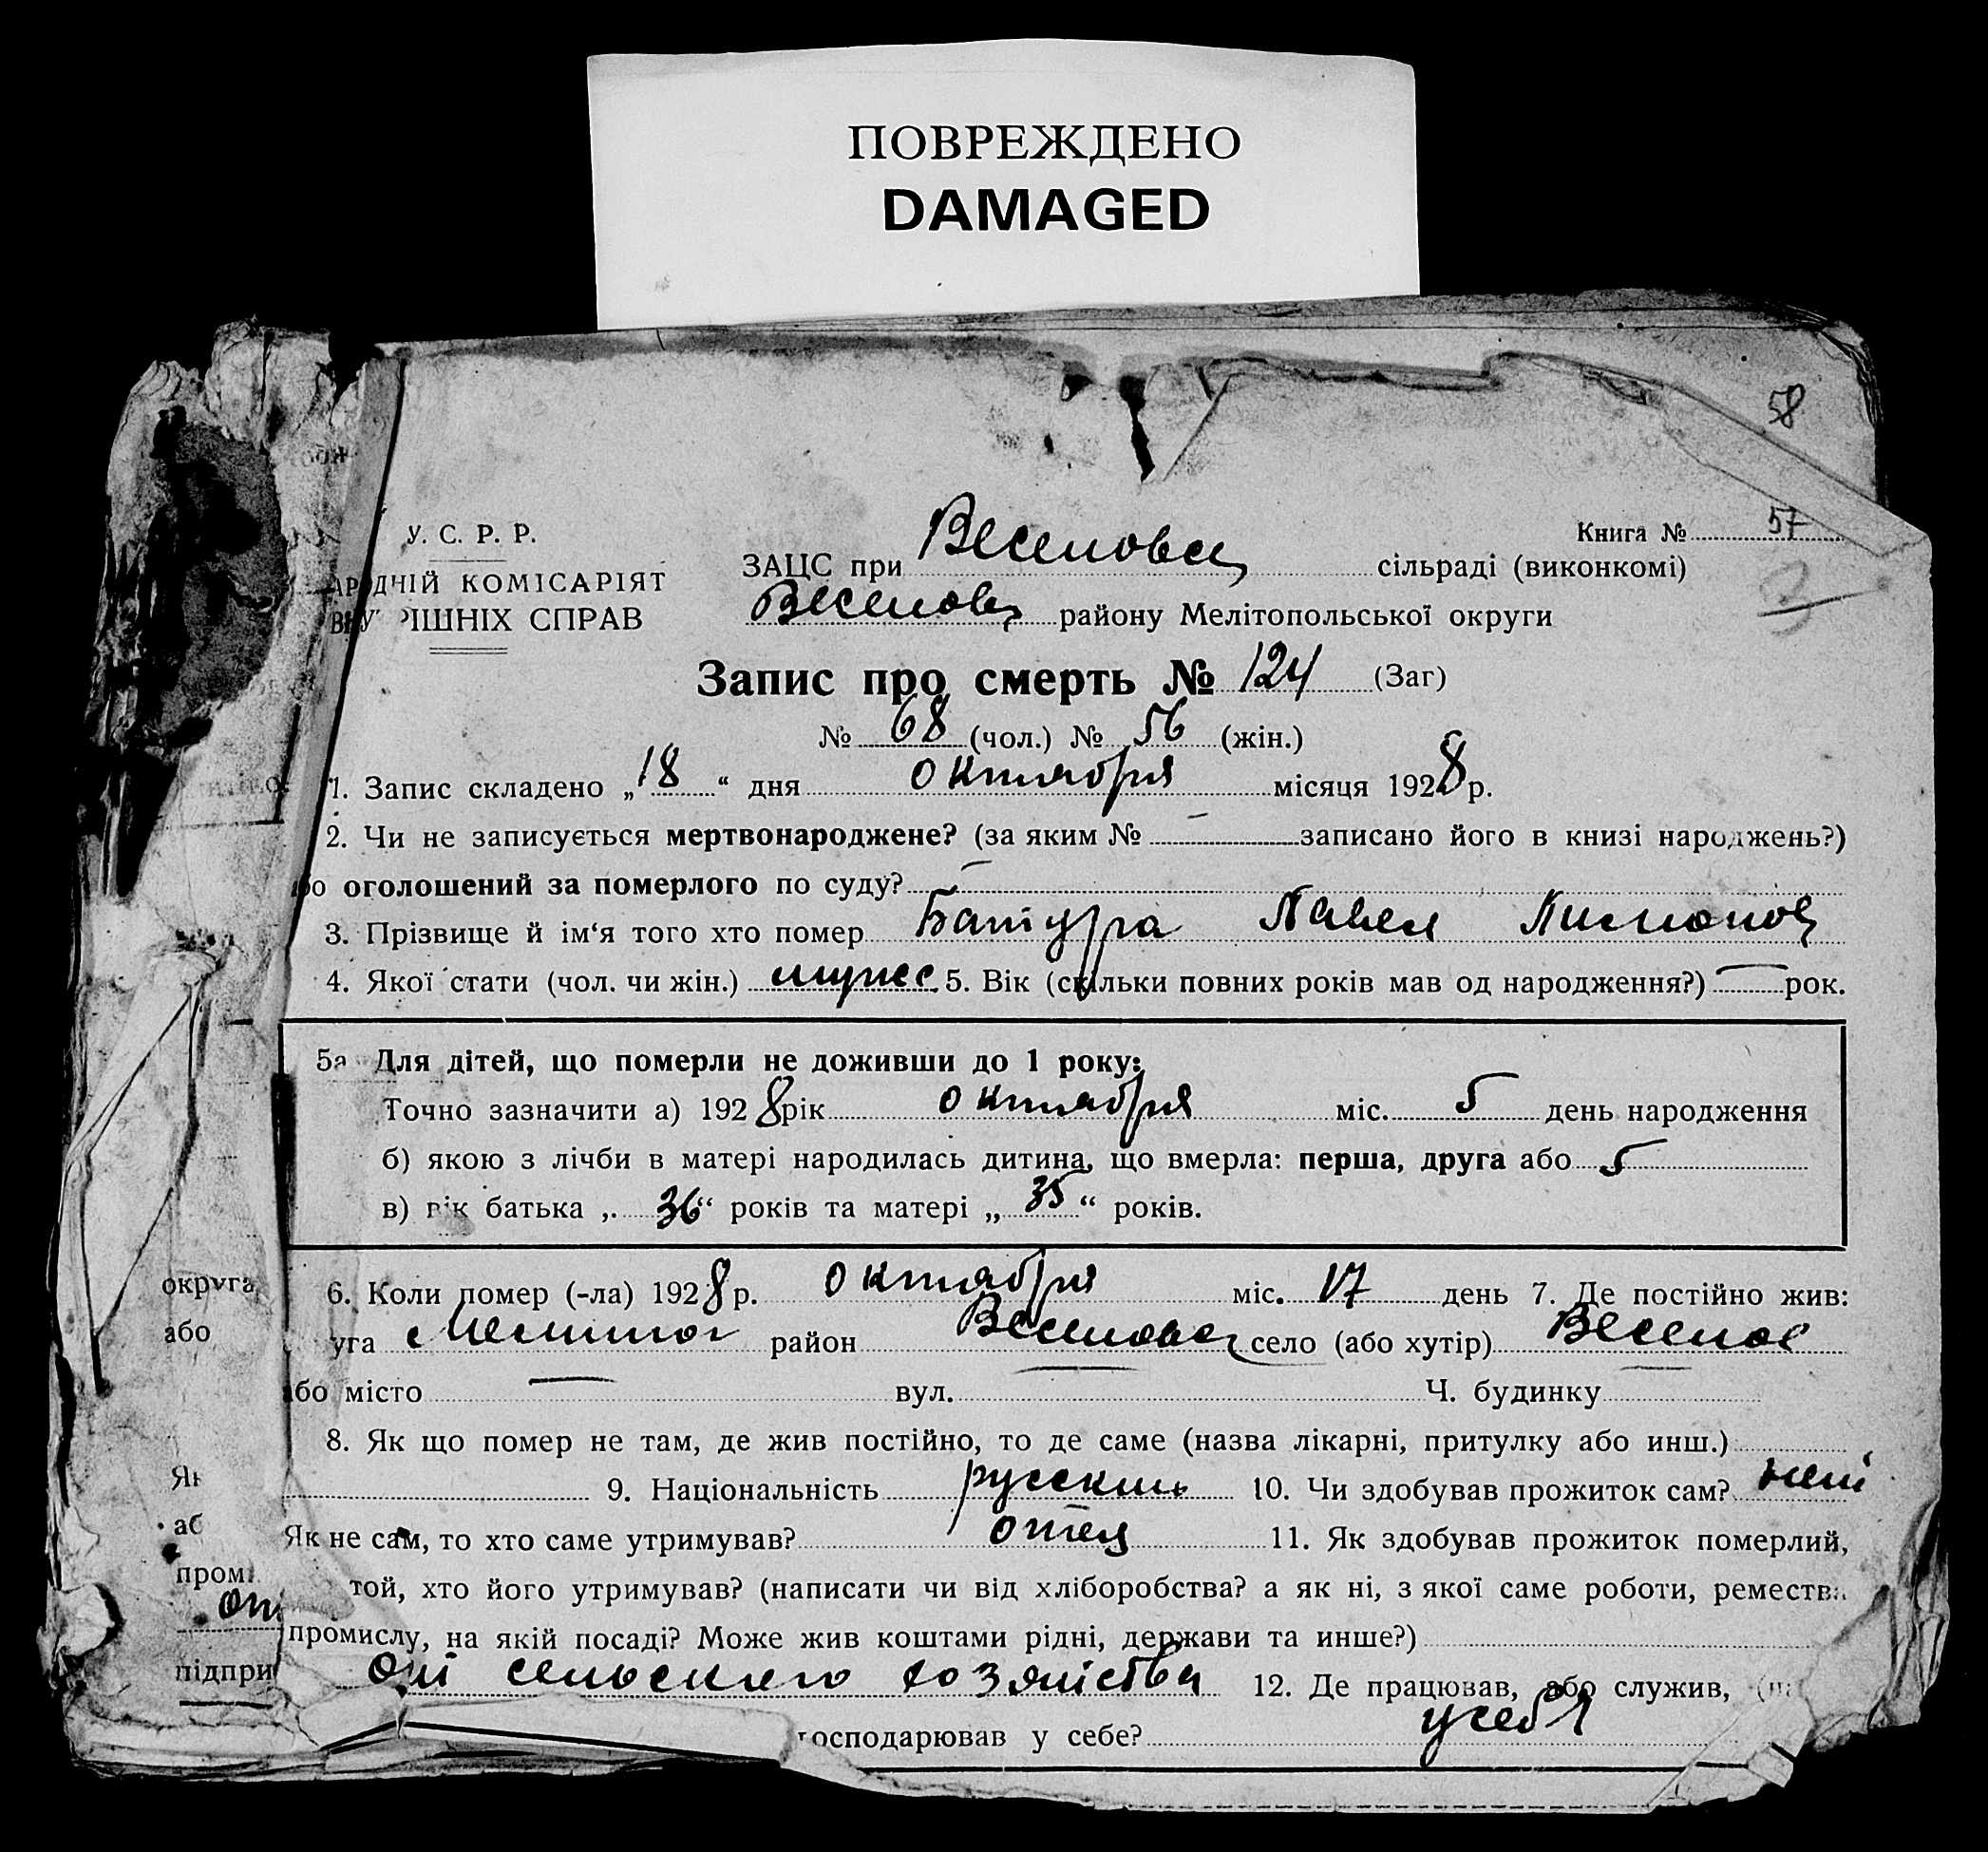 ПОВРЕЖДЕНО
DAMAGED
58
У. С. Р. Р.
Книга № 57
ЗАЦС при Веселовск сільраді (виконкомі)
АРОДНІЙ КОМІСАРІЯТ
ВНУ РІШНІХ СПРАВ
Веселовск району Мелітопольської округи
Запис про смерть № 124 (Заг)
№ 68 (чол.) № 56 (жін.)
1. Запис складено „18“ дня октября місяця 1928 р.
2. Чи не записується мертвонароджене? (за яким № — записано його в книзі народжень?)
бо оголошений за померлого по суду? —
3. Прізвище й ім‘я того хто помер Батурра Павел
4. Якої стати (чол. чи жін.) мужс. 5. Вік (скільки повних років мав од народження?) — рок.
5а Для дітей, що померли не доживши до 1 року:
Точно зазначити а) 1928 рік октября міс. 5 день народження
б) якою з лічби в матері народилась дитина, що вмерла: перша, друга або 5
в) вік батька „36“ років та матері „35“ років.
6. Коли помер (-ла) 1928 р. октября міс. 17 день 7. Де постійно жив:
округа
уга Мелитоп район Веселовск село (або хутір) Веселое
або
або місто — вул. — Ч. будинку —
8. Як що помер не там, де жив постійно, то де саме (назва лікарні, притулку або инш.)
Як
9. Національність русский 10. Чи здобував прожиток сам? нет
аб
Як не сам, то хто саме утримував? отец 11. Як здобував прожиток померлий,
пром
той, хто його утримував? (написати чи від хліборобства? а як ні, з якої саме роботи, ремества
от
промислу, на якій посаді? Може жив коштами рідні, держави та инше?)
підпри
от сельского хозяйства 12. Де працював, або служив,
господарював у себе? у себя